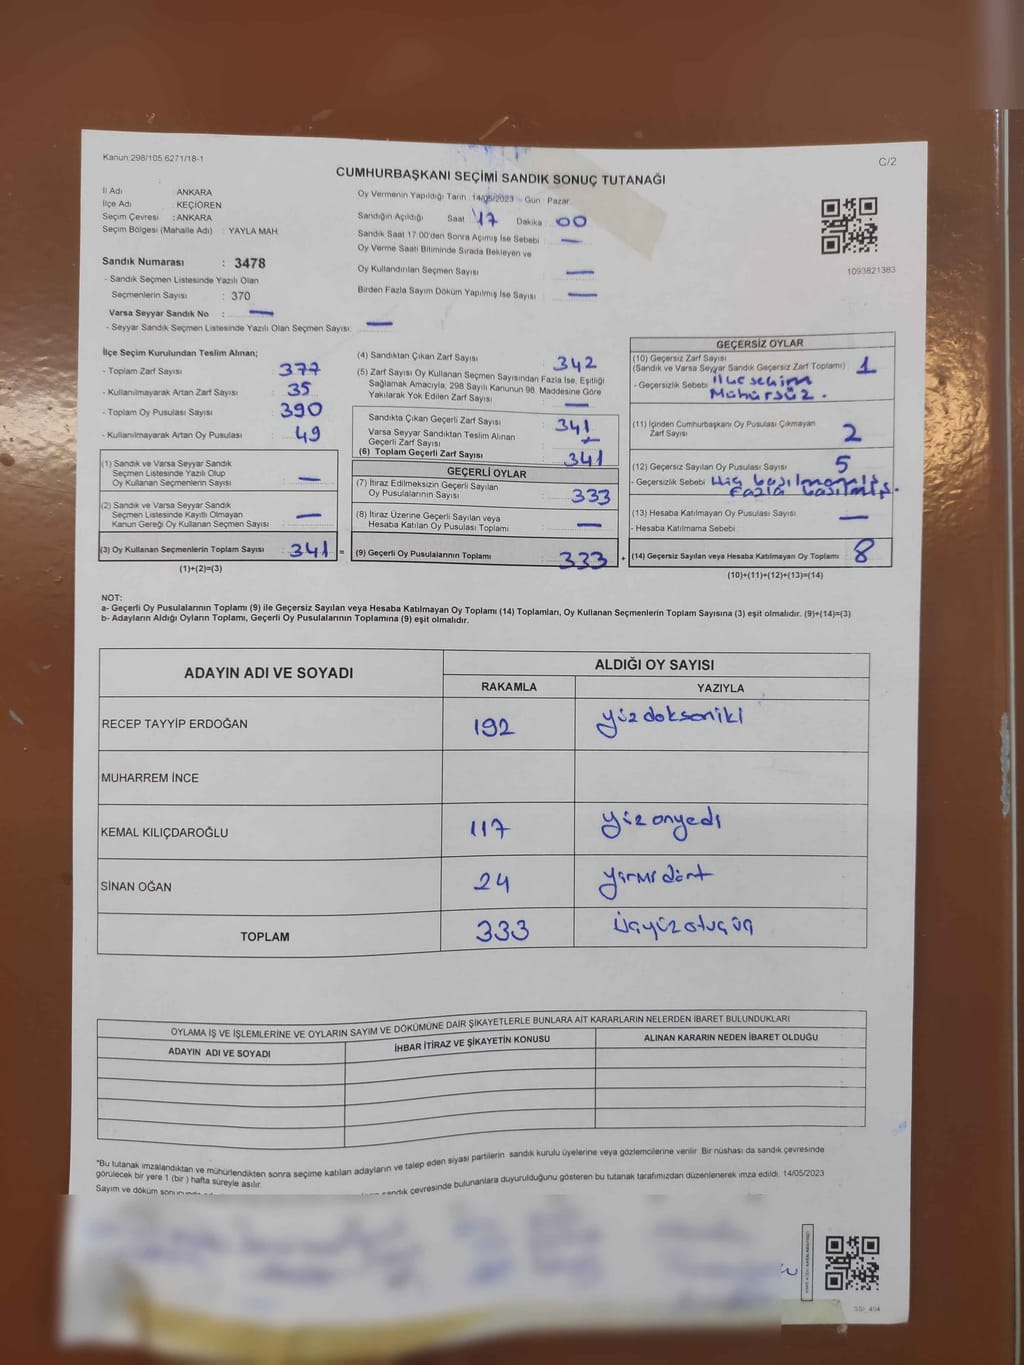 Kanun:298/105.6271/18-1
C/2
CUMHURBAŞKANI SEÇİMİ SANDIK SONUÇ TUTANAĞI
İl Adı ANKARA
İlçe Adı : KEÇİÖREN
Seçim Çevresi : ANKARA
Seçim Bölgesi (Mahalle Adı) : YAYLA MAH
Sandık Numarası : 3478
- Sandık Seçmen Listesinde Yazılı Olan
Seçmenlerin Sayısı : 370
Varsa Seyyar Sandık No : —
- Seyyar Sandık Seçmen Listesinde Yazılı Olan Seçmen Sayısı: —
Oy Vermenin Yapıldığı Tarih 14/05/2023 - Gün Pazar
Sandığın Açıldığı Saat 17 Dakika : 00
Sandık Saat 17:00'den Sonra Açımış İse Sebebi : —
Oy Verme Saati Bitiminde Sırada Bekleyen ve
Oy Kullandırılan Seçmen Sayısı : —
Birden Fazla Sayım Döküm Yapılmış İse Sayısı : —
1093821383
İlçe Seçim Kurulundan Teslim Alınan;
- Toplam Zarf Sayısı : 377
- Kullanılmayarak Artan Zarf Sayısı : 35
- Toplam Oy Pusulası Sayısı : 390
- Kullanılmayarak Artan Oy Pusulası : 49
(1) Sandık ve Varsa Seyyar Sandık
Seçmen Listesinde Yazılı Olup
Oy Kullanan Seçmenlerin Sayısı : —
(2) Sandık ve Varsa Seyyar Sandık
Seçmen Listesinde Kayıtlı Olmayan
Kanun Gereği Oy Kullanan Seçmen Sayısı : —
(3) Oy Kullanan Seçmenlerin Toplam Sayısı : 341 =
(1)+(2)=(3)
(4) Sandıktan Çıkan Zarf Sayısı : 342
(5) Zarf Sayısı Oy Kullanan Seçmen Sayısından Fazla İse, Eşitliği
Sağlamak Amacıyla, 298 Sayılı Kanunun 98. Maddesine Göre
Yakılarak Yok Edilen Zarf Sayısı : —
Sandıkta Çıkan Geçerli Zarf Sayısı : 341
Varsa Seyyar Sandıktan Teslim Alınan
Geçerli Zarf Sayısı : —
(6) Toplam Geçerli Zarf Sayısı : 341
GEÇERLİ OYLAR
(7) İtiraz Edilmeksizin Geçerli Sayılan
Oy Pusulalarının Sayısı : 333
(8) İtiraz Üzerine Geçerli Sayılan veya
Hesaba Katılan Oy Pusulası Toplamı : —
(9) Geçerli Oy Pusulalarının Toplamı : 333 +
GEÇERSİZ OYLAR
(10) Geçersiz Zarf Sayısı
(Sandık ve Varsa Seyyar Sandık Geçersiz Zarf Toplamı) : 1
- Geçersizlik Sebebi : ilçe seçim
Mühürsüz.
(11) İçinden Cumhurbaşkanı Oy Pusulası Çıkmayan
Zarf Sayısı : 2
(12) Geçersiz Sayılan Oy Pusulası Sayısı : 5
- Geçersizlik Sebebi : Hiç basılmamış
Fazla basılmış.
(13) Hesaba Katılmayan Oy Pusulası Sayısı : —
- Hesaba Katılmama Sebebi :
(14) Geçersiz Sayılan veya Hesaba Katılmayan Oy Toplamı : 8
(10)+(11)+(12)+(13)=(14)
NOT:
a- Geçerli Oy Pusulalarının Toplamı (9) ile Geçersiz Sayılan veya Hesaba Katılmayan Oy Toplamı (14) Toplamları, Oy Kullanan Seçmenlerin Toplam Sayısına (3) eşit olmalıdır. (9)+(14)=(3)
b- Adayların Aldığı Oyların Toplamı, Geçerli Oy Pusulalarının Toplamına (9) eşit olmalıdır.
ADAYIN ADI VE SOYADI ALDIĞI OY SAYISI
RAKAMLA YAZIYLA
RECEP TAYYİP ERDOĞAN 192 yüzdoksaniki
MUHARREM İNCE
KEMAL KILIÇDAROĞLU 117 yüzonyedi
SİNAN OĞAN 24 yirmidört
TOPLAM 333 üçyüzotuzüç
OYLAMA İŞ VE İŞLEMLERİNE VE OYLARIN SAYIM VE DÖKÜMÜNE DAİR ŞİKAYETLERLE BUNLARA AİT KARARLARIN NELERDEN İBARET BULUNDUKLARI
ADAYIN ADI VE SOYADI İHBAR İTİRAZ VE ŞİKAYETİN KONUSU ALINAN KARARIN NEDEN İBARET OLDUĞU
*Bu tutanak imzalandıktan ve mühürlendikten sonra seçime katılan adayların ve talep eden siyasi partilerin sandık kurulu üyelerine veya gözlemcilerine verilir. Bir nüshası da sandık çevresinde
görülecek bir yere 1 (bir) hafta süreyle asılır.
Sayım ve döküm sandık çevresinde bulunanlara duyurulduğunu gösteren bu tutanak tarafımızdan düzenlenerek imza edildi. 14/05/2023